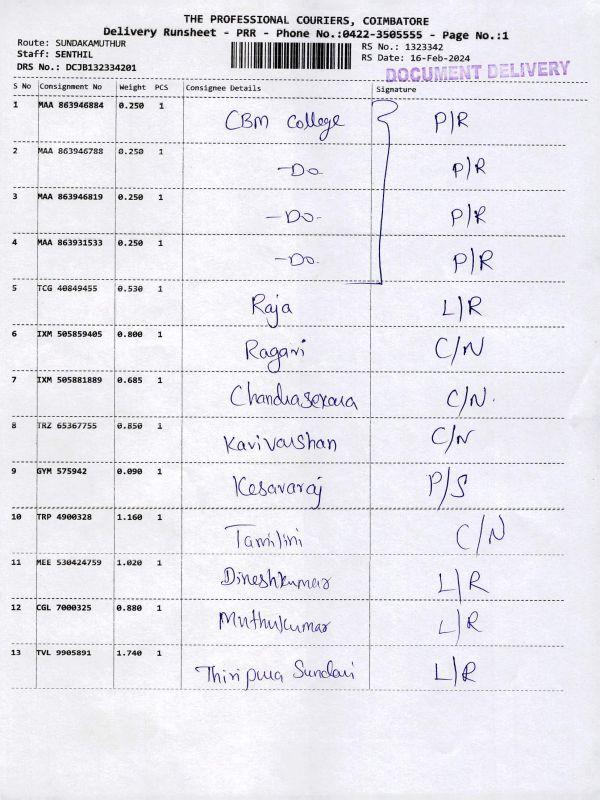 THE PROFESSIONAL COURIERS, COIMBATORE
Delivery Runsheet - PRR - Phone No.:0422-3505555 - Page No.:1
Route: SUNDAKAMUTHUR RS No.: 1323342
Staff: SENTHIL RS Date: 16-Feb-2024
DRS No.: DCJB132334201 DOCUMENT DELIVERY
S No Consignment No Weight PCS Consignee Details Signature
1 MAA 863946884 0.250 1 CBM College P/R
2 MAA 863946788 0.250 1 -Do. P/R
3 MAA 863946819 0.250 1 -Do- P/R
4 MAA 863931533 0.250 1 -Do. P/R
5 TCG 40849455 0.530 1 Raja L/R
6 IXM 505859405 0.800 1 Ragavi C/N
7 IXM 505881889 0.685 1 Chandrasekara C/N.
8 TRZ 65367755 0.850 1 Kavivarshan C/N
9 GYM 575942 0.090 1 Kesavaraj P/S
10 TRP 4900328 1.160 1 Tamilini C/N
11 MEE 530424759 1.020 1 Dineshkumar L/R
12 CGL 7000325 0.880 1 Muthukumar L/R
13 TVL 9905891 1.740 1 Thiripura Sundari L/R